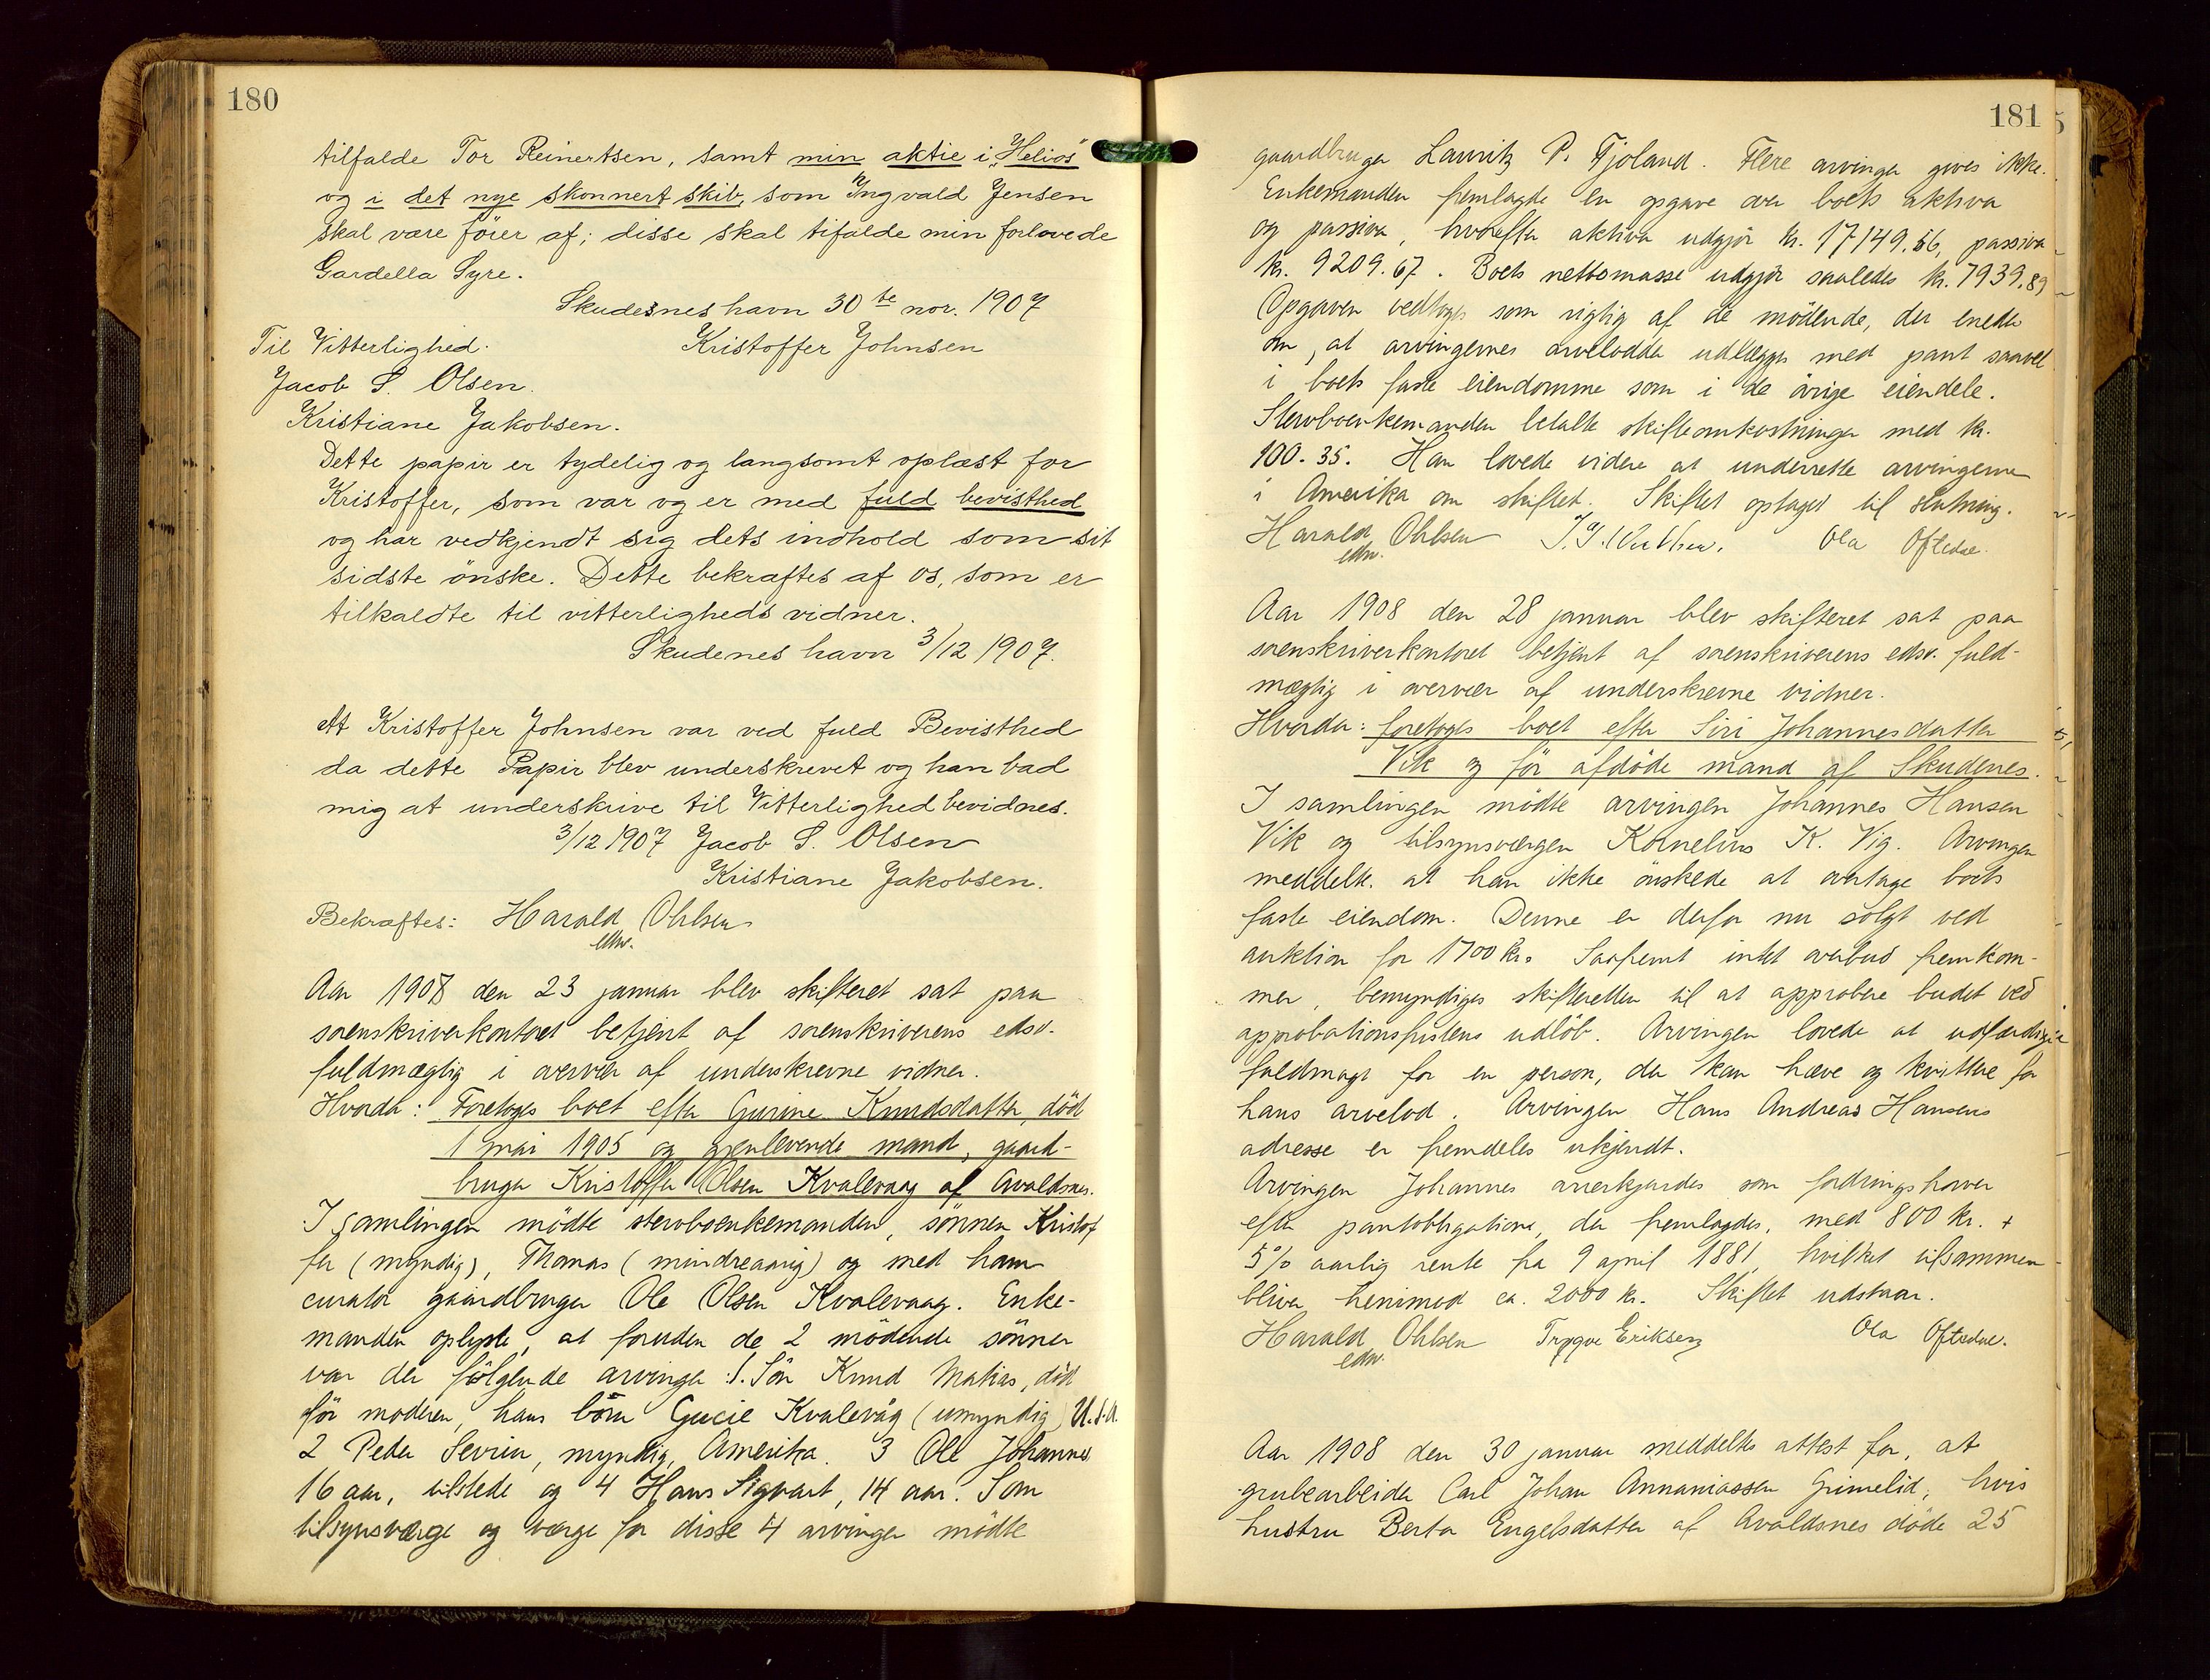 180
tilfalde Tor Reinertsen, samt min aktie i "Helios"
og i det nye skonnert skib, som Yngvald Jensen
skal være fører af; disse skal tifalde min forlovede
Gardella Syre.
Skudesneshavn 30te nov. 1907
Til Vitterlighed. Kristoffer Johnsen
Jacob S. Olsen.
Kristiane Jakobsen.
Dette papir er tydelig og langsomt oplæst for
Kristoffer, som var og er med fuld bevisthed
og har vedkjendt sig dets indhold som sit
sidste ønske. Dette bekræftes af os, som er
tilkaldte til vitterligheds vidner.
Skudenes havn 3/12 1907.
At Kristoffer Johnsen var ved fuld Bevisthed
da dette Papir blev underskrevet og han bad
mig at underskrive til Vitterlighed bevidnes.
3/12 1907 Jacob S. Olsen
Kristiane Jakobsen.
Bekræftes: Harald Ohlsen
edsv.
Aar 1908 den 23 januar blev skifteret sat paa
sorenskriverkontoret betjent af sorenskriverens edsv.
fuldmægtig i overvær af underskrevne vidner.
Hvorda: Foretoges boet efter Gurine Knudsdatter, død
1 mai 1905 og gjenlevende mand, gaard-
bruger Kristoffer Olsen Kvalevaag af Avaldsnes.
I samlingen mødte stervboenkemanden, sønnen Kristof
fer (myndig), Thomas (mindreaarig) og med ham
curator gaardbruger Ole Olsen Kvalevaag. Enke-
manden oplyste, at foruden de 2 mødende sønner
var der følgende arvinger: 1. Søn Knud Matias, død
før moderen, hans børn Gucie Kvalevåg (umyndig) U.S.A.
2 Peder Severin, myndig, Amerika. 3 Ole Johannes
16 aar, tilstede og 4 Hans Sigvart, 14 aar. Som
tilsynsværge og værge for disse 4 arvinger mødte
181
gaardbruger Lauritz P. Fjoland. Flere arvinger gives ikke.
Enkemanden fremlagde en opgave over boets aktiva
og passiva, hvorefter aktiva udgjør kr. 17149.56, passiva
kr. 9209.67. Boets nettomasse udgjør saaledes kr. 7939.89
Opgaven vedtoges som rigtig af de mødende, der enedes
om, at arvingernes arvelodder udlægges med pant saavel
i boets faste eiendomme som i de øvrige eiendele.
Stervboenkemanden betalte skifteomkostninger med kr.
100.35. Han lovede videre at underrette arvingerne
i Amerika om skiftet. Skiftet optaget til slutning.
Harald Ohlsen Ola Oftedal.
edsv.
Aar 1908 den 28 januar blev skifteret sat paa
sorenskriverkontoret betjent af sorenskriverens edsv. fuld-
mægtig i overvær af underskrevne vidner.
Hvorda: foretoges boet efter Siri Johannesdatter
Vik og før afdøde mand af Skudenes.
I samlingen mødte arvingen Johannes Hansen
Vik og tilsynsværgen Kornelius K. Vig. Arvingen
meddelte at han ikke ønskede at overtage boets
faste eiendom. Denne er derfor nu solgt ved
auktion for 1700 kr. Saafremt intet overbud fremkom-
mer, bemyndiges skifteretten til at approbere budet ved
approbationsfristens udløb. Arvingen lovede at udfærdige
fuldmagt for en person, der kan hæve og kvittere for
hans arvelod. Arvingen Hans Andreas Hansens
adresse er fremdeles ukjendt.
Arvingen Johannes anerkjendes som fordringshaver
efter pantobligationen, der fremlagdes, med 800 kr. +
5% aarlig rente fra 9 april 1881, hvilket tilsammen
bliver henimod ca. 2000 kr. Skiftet udstaar.
Harald Ohlsen Trygve Eriksen Ola Oftedal.
edsv.
Aar 1908 den 30 januar meddeltes attest for, at
grubearbeider Carl Johan Annaniassen Grimelid, hvis
hustru Berta Engelsdatter af Avaldsnes døde 25